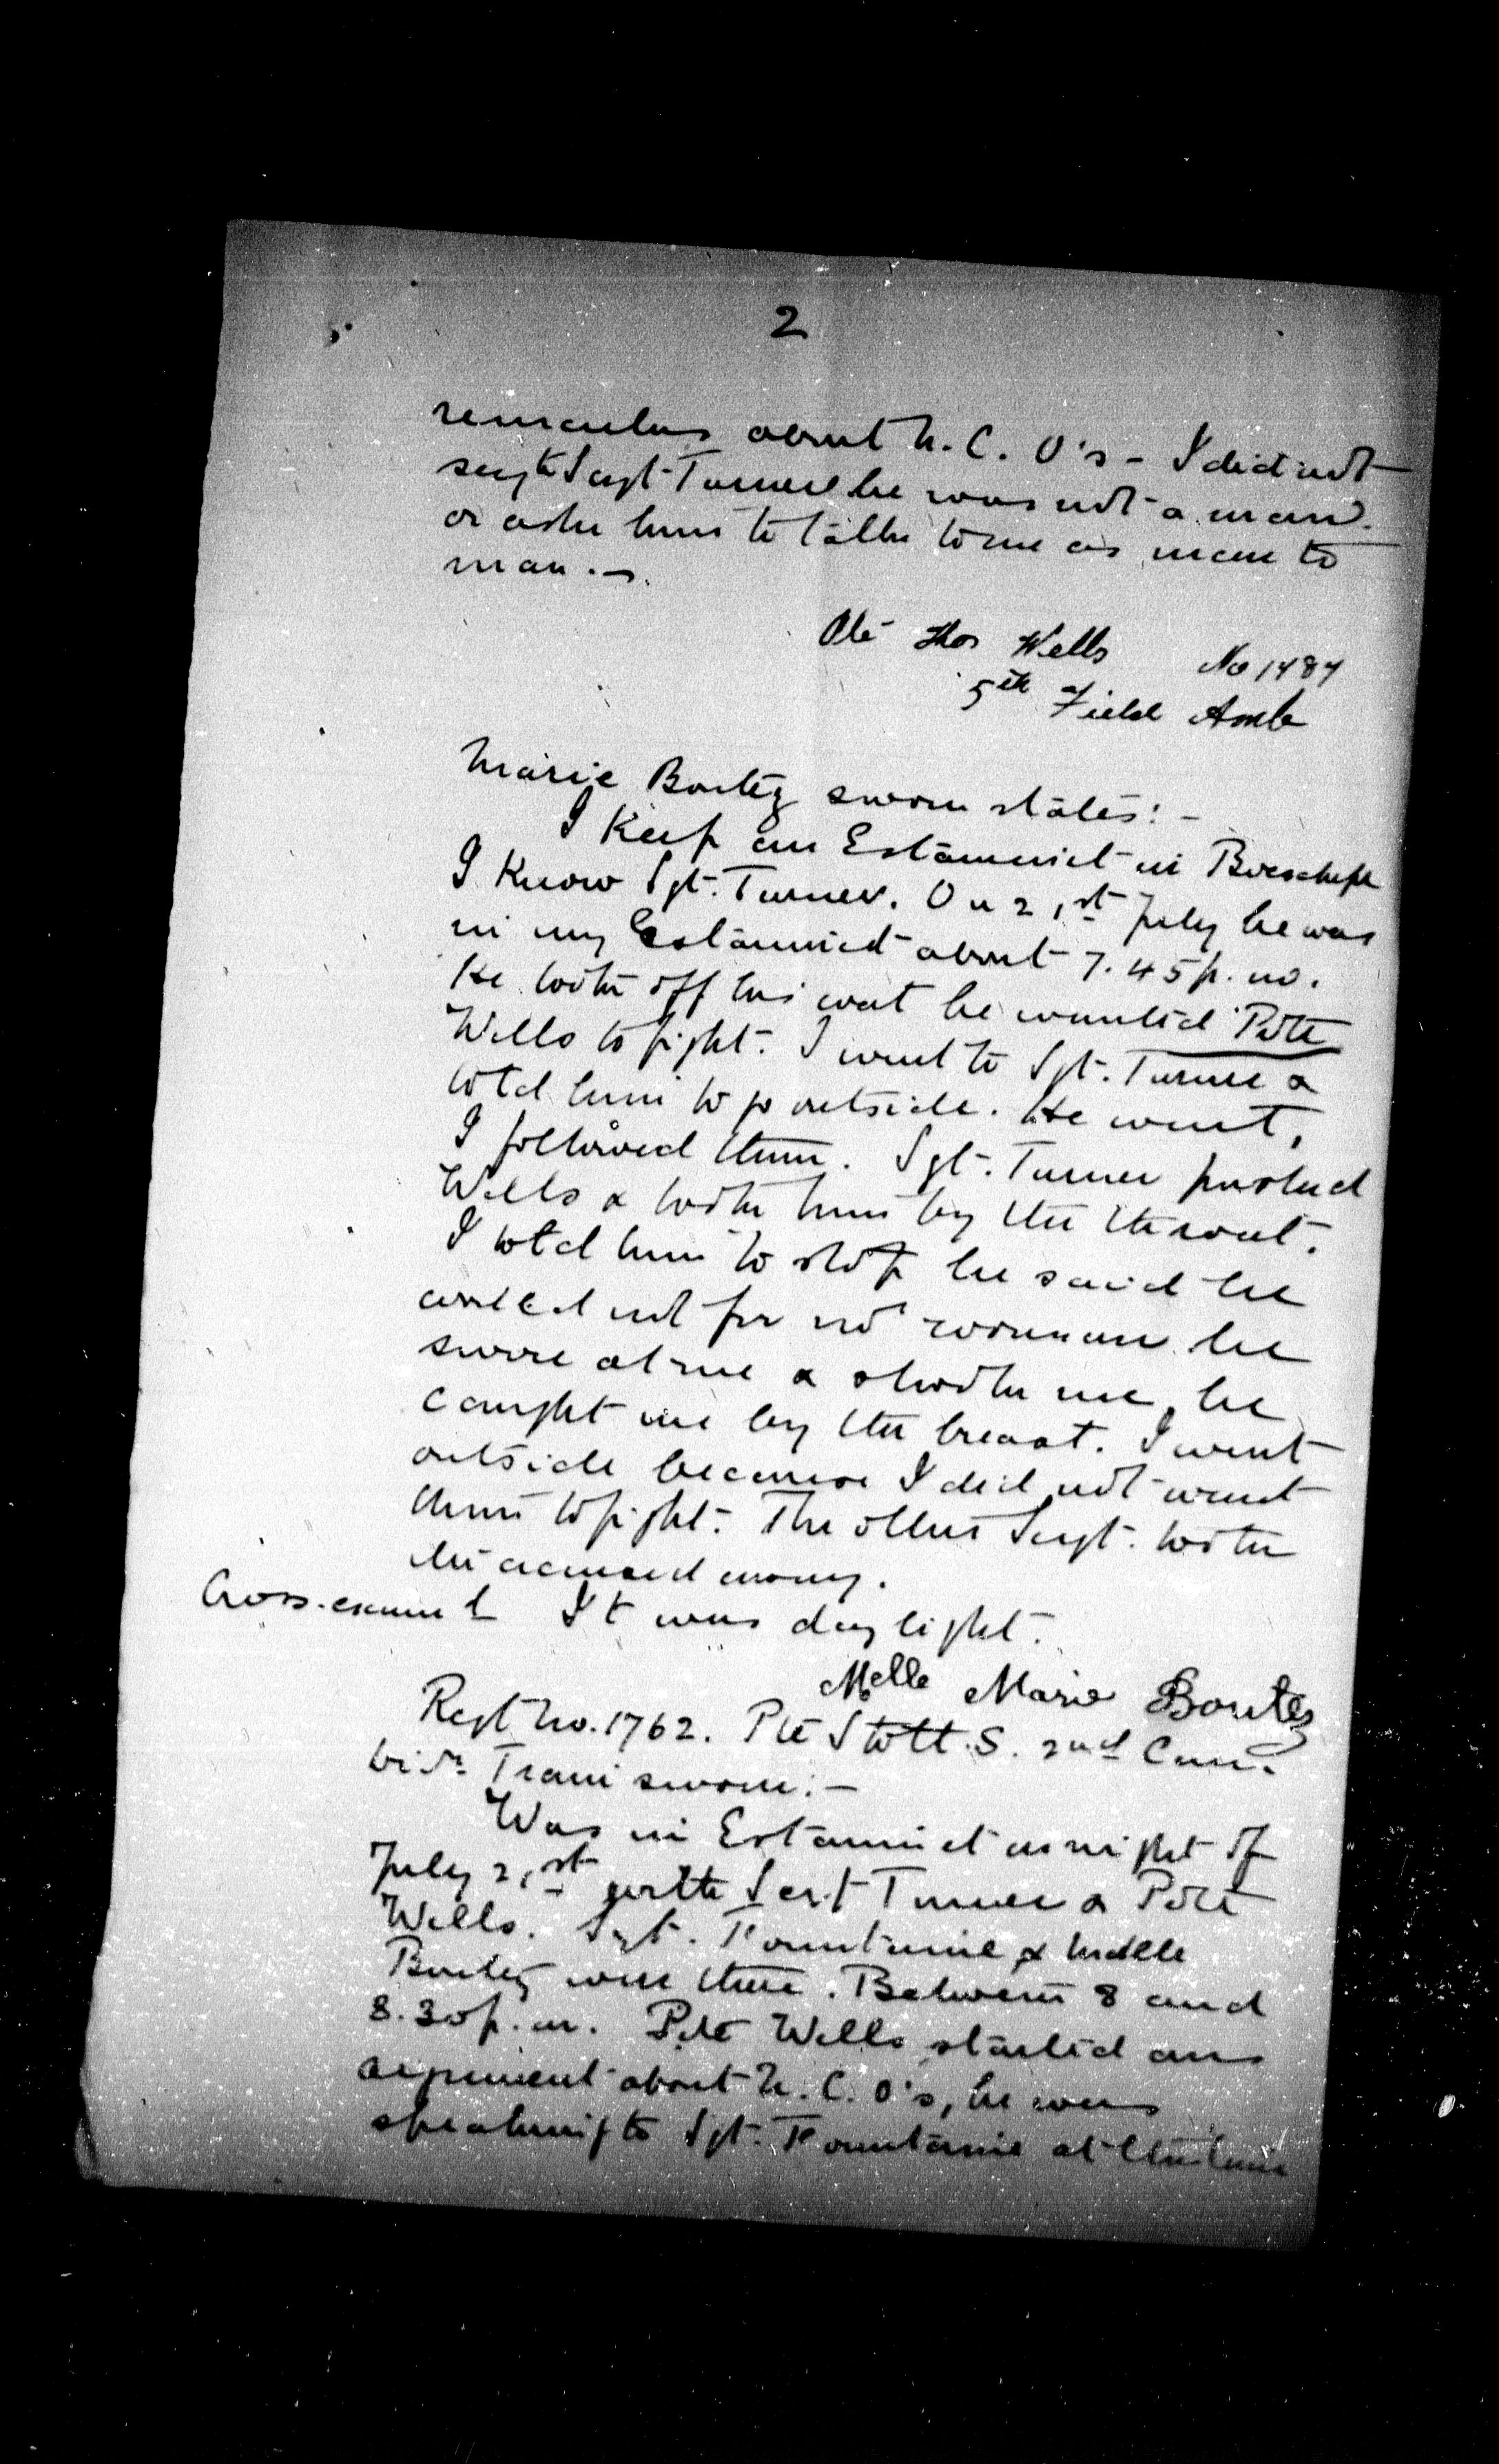 2
remarks about N.C.O's - I did not
say to Sergt Turner he was not a man
or ask him to talk to me as man to
man. -
Pte Thos Wells No 1484
5th Field Amb
Marie Boutez sworn states: -
I keep an Estaminet in Boeschepe
I know Sgt. Turner. On 21st July he was
in my Estaminet about 7.45 p.m.
He took off his coat he wanted Pte
Wells to fight. I went to Sgt. Turner &
told him to go outside. He went,
I followed them. Sgt. Turner pushed
Wells & took him by the throat.
I told him to stop he said he
cared not for no woman he
swore at me & shook me, he
caught me by the breast. I went
outside because I did not want
them to fight. The other Sergt. took
the accused away.
Cross-examd It was daylight.
Melle Marie Boutez
Regt No. 1762. Pte Stott. S. 2nd Can.
Div. Train sworn: -
Was in Estaminet on night of
July 21st with Sergt Turner & Pte
Wells. Sgt. Fountaine & Mdlle
Boutez were there. Between 8 and
8.30 p.m. Pte Wells started an
argument about N.C.O's, he was
speaking to Sgt. Fountaine at the time